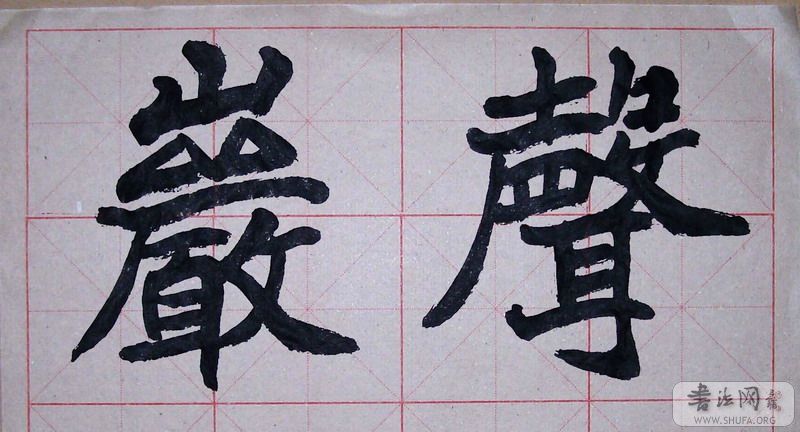 聲
巖
書法网
WWW.SHUFA.ORG